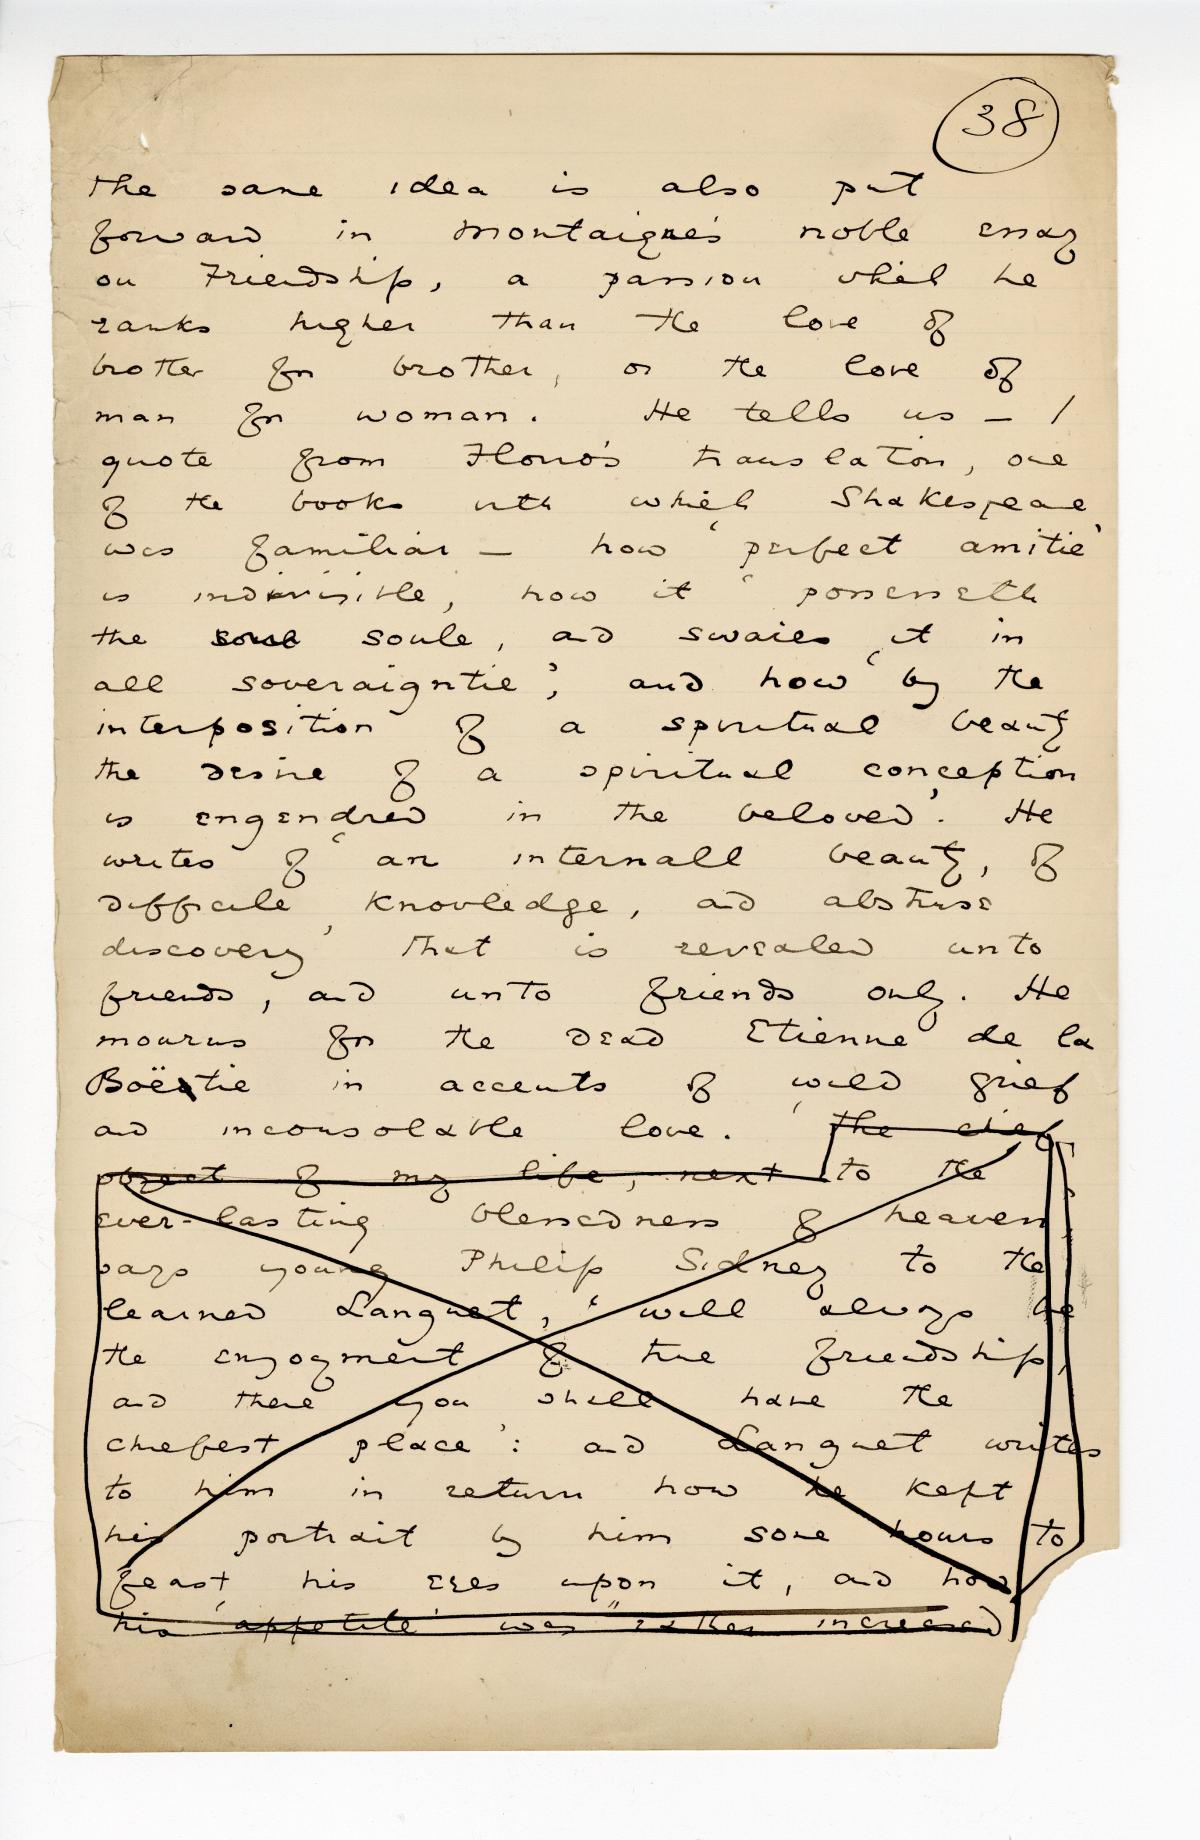 38
the same idea is also put
forward in Montaigne's noble essay
on Friendship, a passion which he
ranks higher than the love of
brother for brother, or the love of
man for woman. He tells us – I
quote from Florio's translation, one
of the books with which Shakespeare
was familiar – how 'perfect amitie'
is indivisible, how it 'possesseth
the soul soule, and swaies it in
all soveraigntie', and how 'by the
interposition of a spiritual beauty
the desire of a spiritual conception
is engendred in the beloved'. He
writes of 'an internall beauty, of
difficile knowledge, and abstruse
discovery' that is revealed unto
friends, and unto friends only. He
mourns for the dead Etienne de la
Boëtie in accents of wild grief
and inconsolable love. 'The chief
object of my life, next to the
ever-lasting blessedness of heaven'
says young Philip Sidney to the
learned Languet, 'will always be
the enjoyment of true friendship,
and there you shall have the
chiefest place': and Languet writes
to him in return how he kept
his portrait by him some hours to
feast his eyes upon it, and how
his 'appetite' was "rather increased